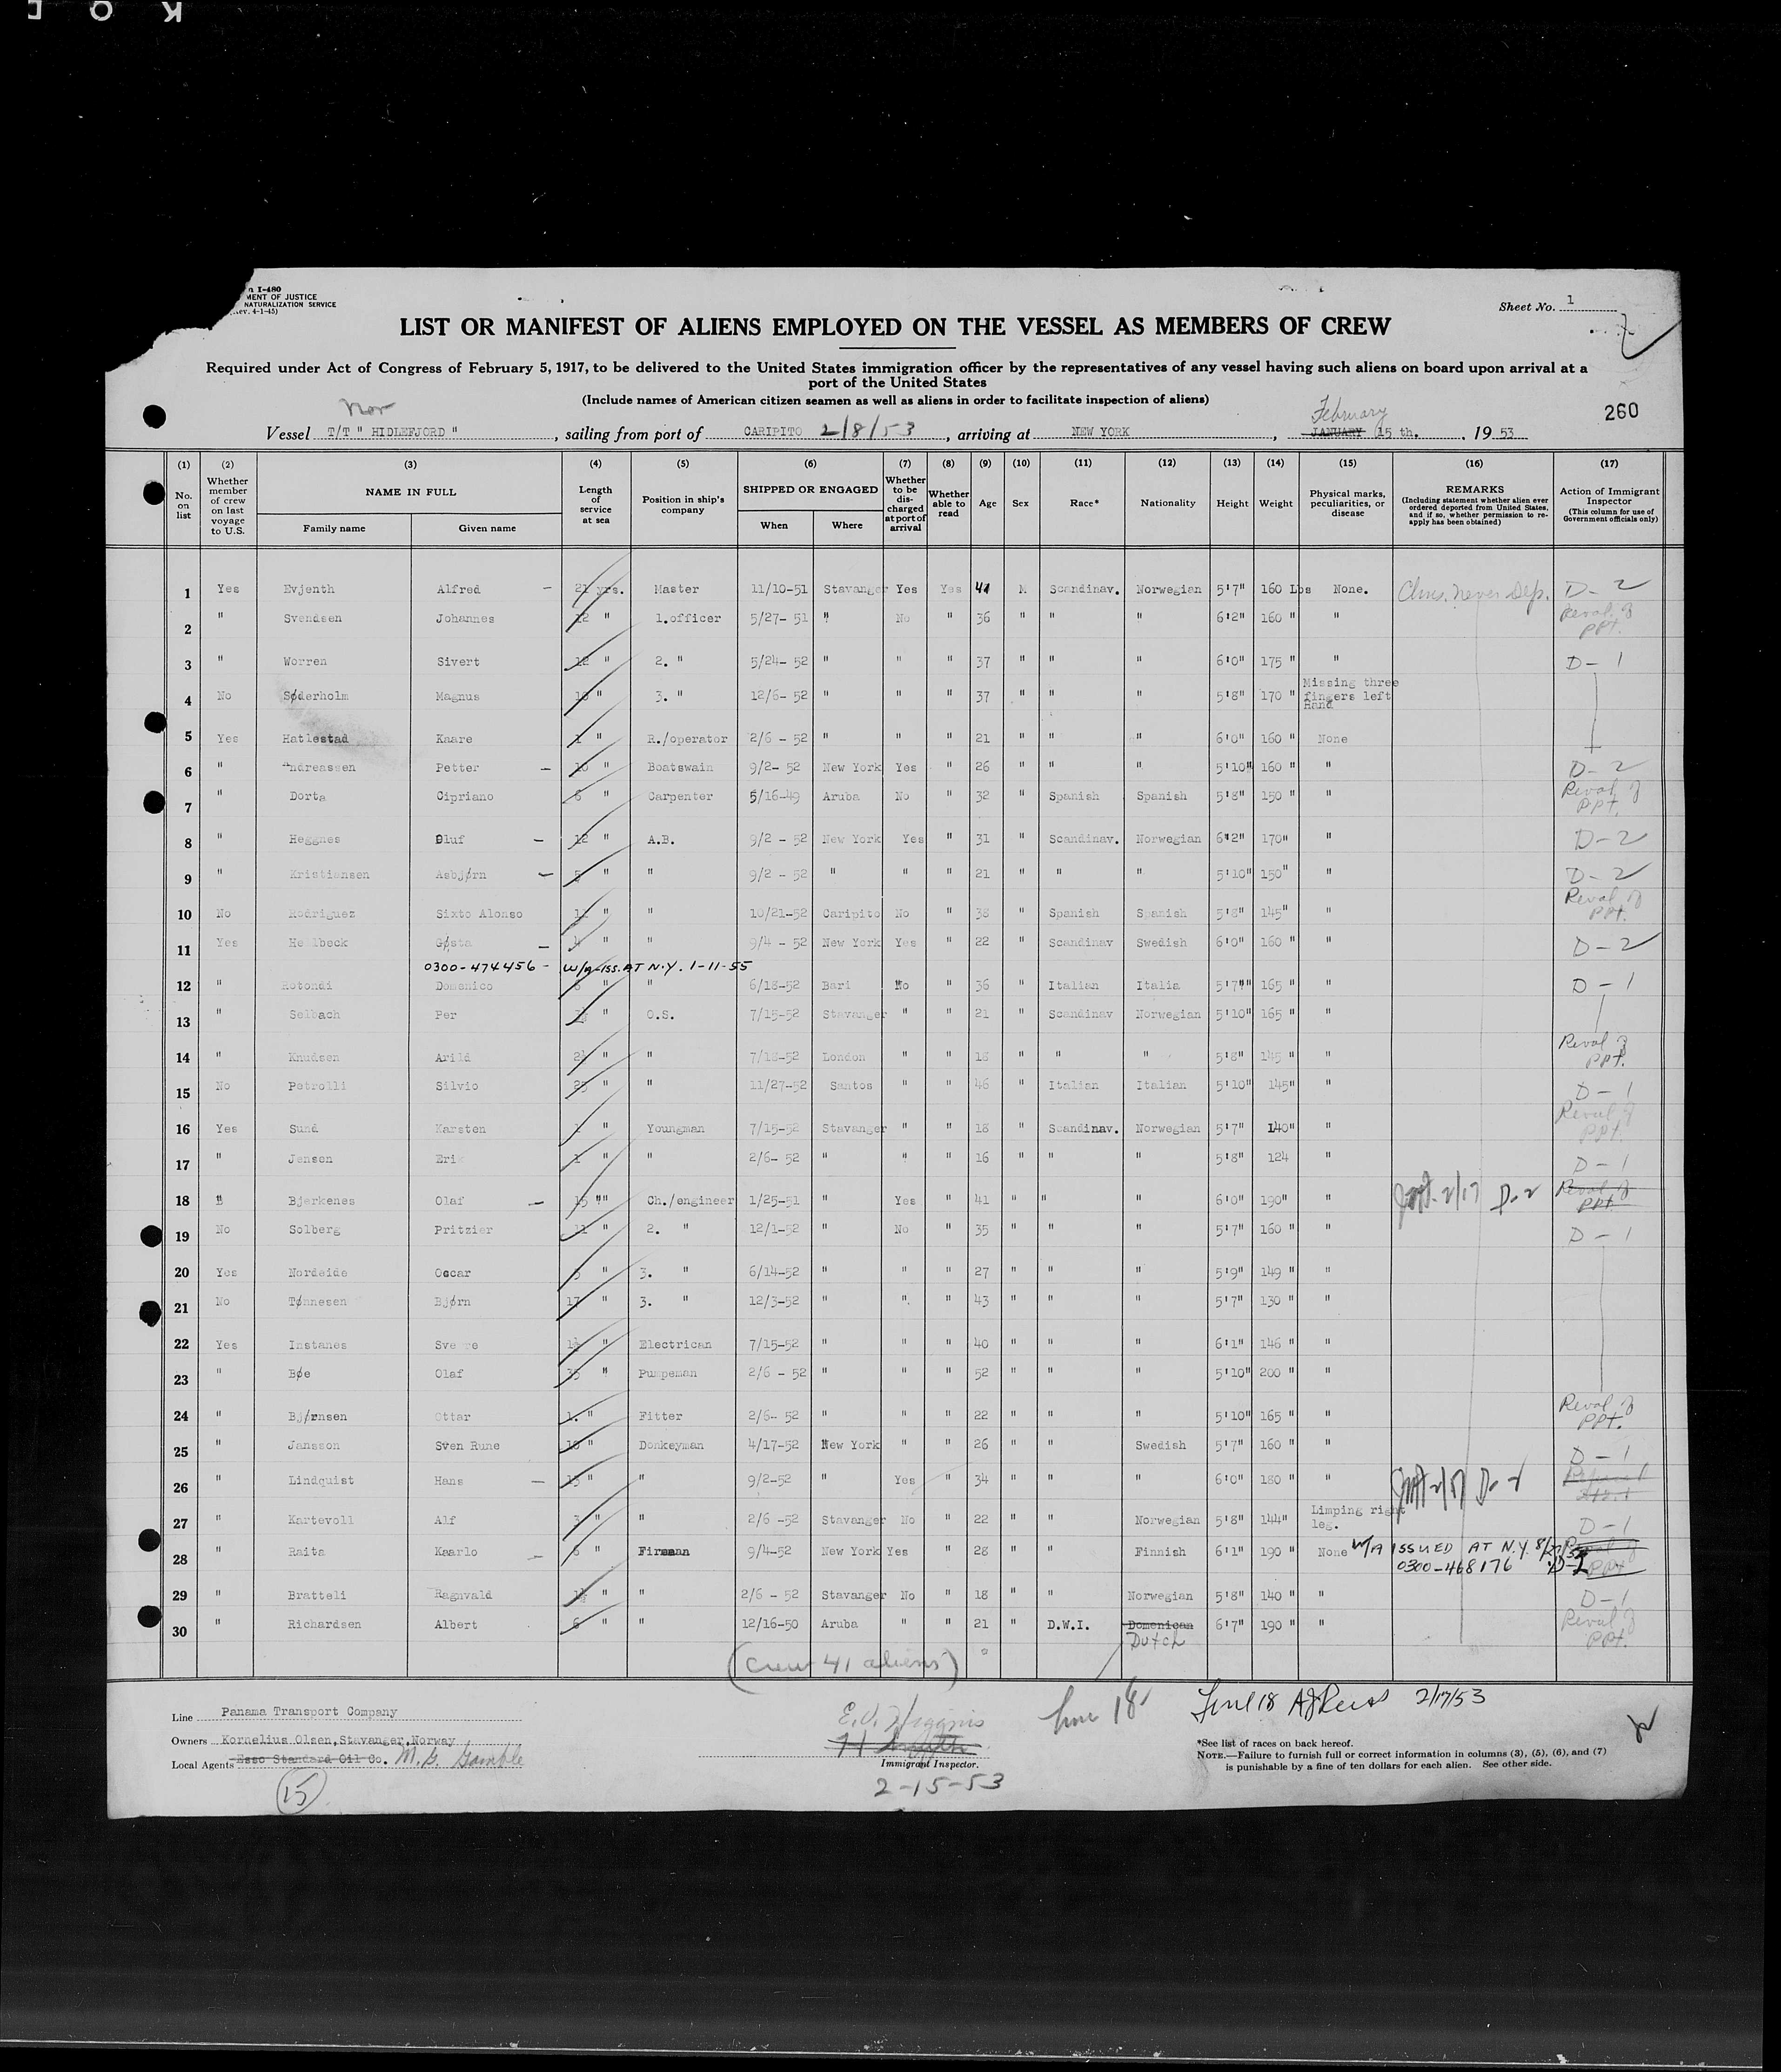 K O L
n I-480
MENT OF JUSTICE
NATURALIZATION SERVICE
ev. 4-1-45)
Sheet No. 1
LIST OR MANIFEST OF ALIENS EMPLOYED ON THE VESSEL AS MEMBERS OF CREW
Required under Act of Congress of February 5, 1917, to be delivered to the United States immigration officer by the representatives of any vessel having such aliens on board upon arrival at a
port of the United States
(Include names of American citizen seamen as well as aliens in order to facilitate inspection of aliens)
Nor
February
260
Vessel T/T " HIDLEFJORD ", sailing from port of CARIPITO 2/8/53, arriving at NEW YORK, JANUARY 15 th. , 19 53
(1) (2) (3) (4) (5) (6) (7) (8) (9) (10) (11) (12) (13) (14) (15) (16) (17)
No. on list
Whether member of crew on last voyage to U.S.
NAME IN FULL
Family name Given name
Length of service at sea
Position in ship's company
SHIPPED OR ENGAGED
When Where
Whether to be discharged at port of arrival
Whether able to read
Age Sex Race* Nationality Height Weight
Physical marks, peculiarities, or disease
REMARKS
(Including statement whether alien ever ordered deported from United States, and if so, whether permission to reapply has been obtained)
Action of Immigrant Inspector
(This column for use of Government officials only)
1 Yes Evjenth Alfred – 21 yrs. Master 11/10-51 Stavanger Yes Yes 41 M Scandinav. Norwegian 5'7" 160 Lbs None. never Dep. D-2
2 " Svendsen Johannes 12 " 1.officer 5/27- 51 " No " 36 " " " 6'2" 160 " " Reval of PPt.
3 " Worren Sivert 12 " 2. " 5/24- 52 " " " 37 " " " 6'0" 175 " " D-1
4 No Søderholm Magnus 18 " 3. " 12/6- 52 " " " 37 " " " 5'8" 170 " Missing three fingers left Hand
5 Yes Hatlestad Kaare 1 " R./operator 2/6 - 52 " " " 21 " " " 6'0" 160 " None
6 " Andreassen Petter – 10 " Boatswain 9/2- 52 New York Yes " 26 " " " 5'10" 160 " " D-2
7 " Dorta Cipriano 6 " Carpenter 5/16-49 Aruba No " 32 " Spanish Spanish 5'8" 150 " " Reval of PPt.
8 " Heggnes Oluf – 12 " A.B. 9/2 - 52 New York Yes " 31 " Scandinav. Norwegian 6'2" 170" " D-2
9 " Kristiansen Asbjørn – 5 " " 9/2 - 52 " " " 21 " " " 5'10" 150" " D-2
10 No Rodriguez Sixto Alonso " " 10/21-52 Caripito No " 38 " Spanish Spanish 5'8" 145" " Reval of PPt.
11 Yes Hellbeck Gøsta – 4 " " 9/4 - 52 New York Yes " 22 " Scandinav Swedish 6'0" 160 " " D-2
0300-474456 - W/A-ISS. AT N.Y. 1-11-55
12 " Rotondi Domenico 6 " " 6/18-52 Bari No " 36 " Italian Italia 5'7" 165 " " D-1
13 " Selbach Per " O.S. 7/15-52 Stavanger " " 21 " Scandinav Norwegian 5'10" 165 " "
14 " Knudsen Arild 2½ " " 7/18-52 London " " 18 " " " 5'8" 145 " " Reval of PPt.
15 No Petrolli Silvio 25 " " 11/27-52 Santos " " 46 " Italian Italian 5'10" 145" " D-1
16 Yes Sund Karsten 1 " Youngman 7/15-52 Stavanger " " 18 " Scandinav. Norwegian 5'7" 140" " Reval of PPt.
17 " Jensen Eri 1 " " 2/6- 52 " " " 16 " " " 5'8" 124 " D-1
18 " Bjerkenes Olaf – 15 "" Ch./engineer 1/25-51 " Yes " 41 " " " 6'0" 190" " 2/17 D-2 Reval of PPt.
19 No Solberg Pritzier 11 " 2. " 12/1-52 " No " 35 " " " 5'7" 160 " " D-1
20 Yes Nordeide Oscar 5 " 3. " 6/14-52 " " " 27 " " " 5'9" 149 " "
21 No Tønnesen Bjørn 17 " 3. " 12/3-52 " " " 43 " " " 5'7" 130 " "
22 Yes Instanes Sverre 1½ " Electrican 7/15-52 " " " 40 " " " 6'1" 146 " "
23 " Bøe Olaf 35 " Pumpeman 2/6 - 52 " " " 52 " " " 5'10" 200 " "
24 " Bjørnsen Ottar 1. " Fitter 2/6- 52 " " " 22 " " " 5'10" 165 " " Reval of PPt.
25 " Jansson Sven Rune 10 " Donkeyman 4/17-52 New York " " 26 " " Swedish 5'7" 160 " " D-1
26 " Lindquist Hans – 15 " " 9/2-52 " Yes " 34 " " " 6'0" 180 " " 2/17 D-2
27 " Kartevoll Alf 3 " " 2/6 -52 Stavanger No " 22 " " Norwegian 5'8" 144" Limping right leg. D-1
28 " Raita Kaarlo – 6 " Firmann 9/4-52 New York Yes " 28 " " Finnish 6'1" 190 " None W/A ISSUED AT N.Y. 0300-468176 Reval of PPt
29 " Bratteli Ragnvald 1½ " " 2/6 - 52 Stavanger No " 18 " " Norwegian 5'8" 140 " " D-1
30 " Richardsen Albert 6 " " 12/16-50 Aruba " " 21 " D.W.I. Domenican Dutch 6'7" 190 " " Reval of PPt.
(Crew 41 aliens)
Line Panama Transport Company
Owners Kornelius Olsen, Stavanger, Norway
Local Agents Esso Standard Oil Co. M. G. Gamble
15
E.J. Higgins
Immigrant Inspector.
2-15-53
line 18
Line 18 2/17/53
*See list of races on back hereof.
NOTE.—Failure to furnish full or correct information in columns (3), (5), (6), and (7)
is punishable by a fine of ten dollars for each alien. See other side.